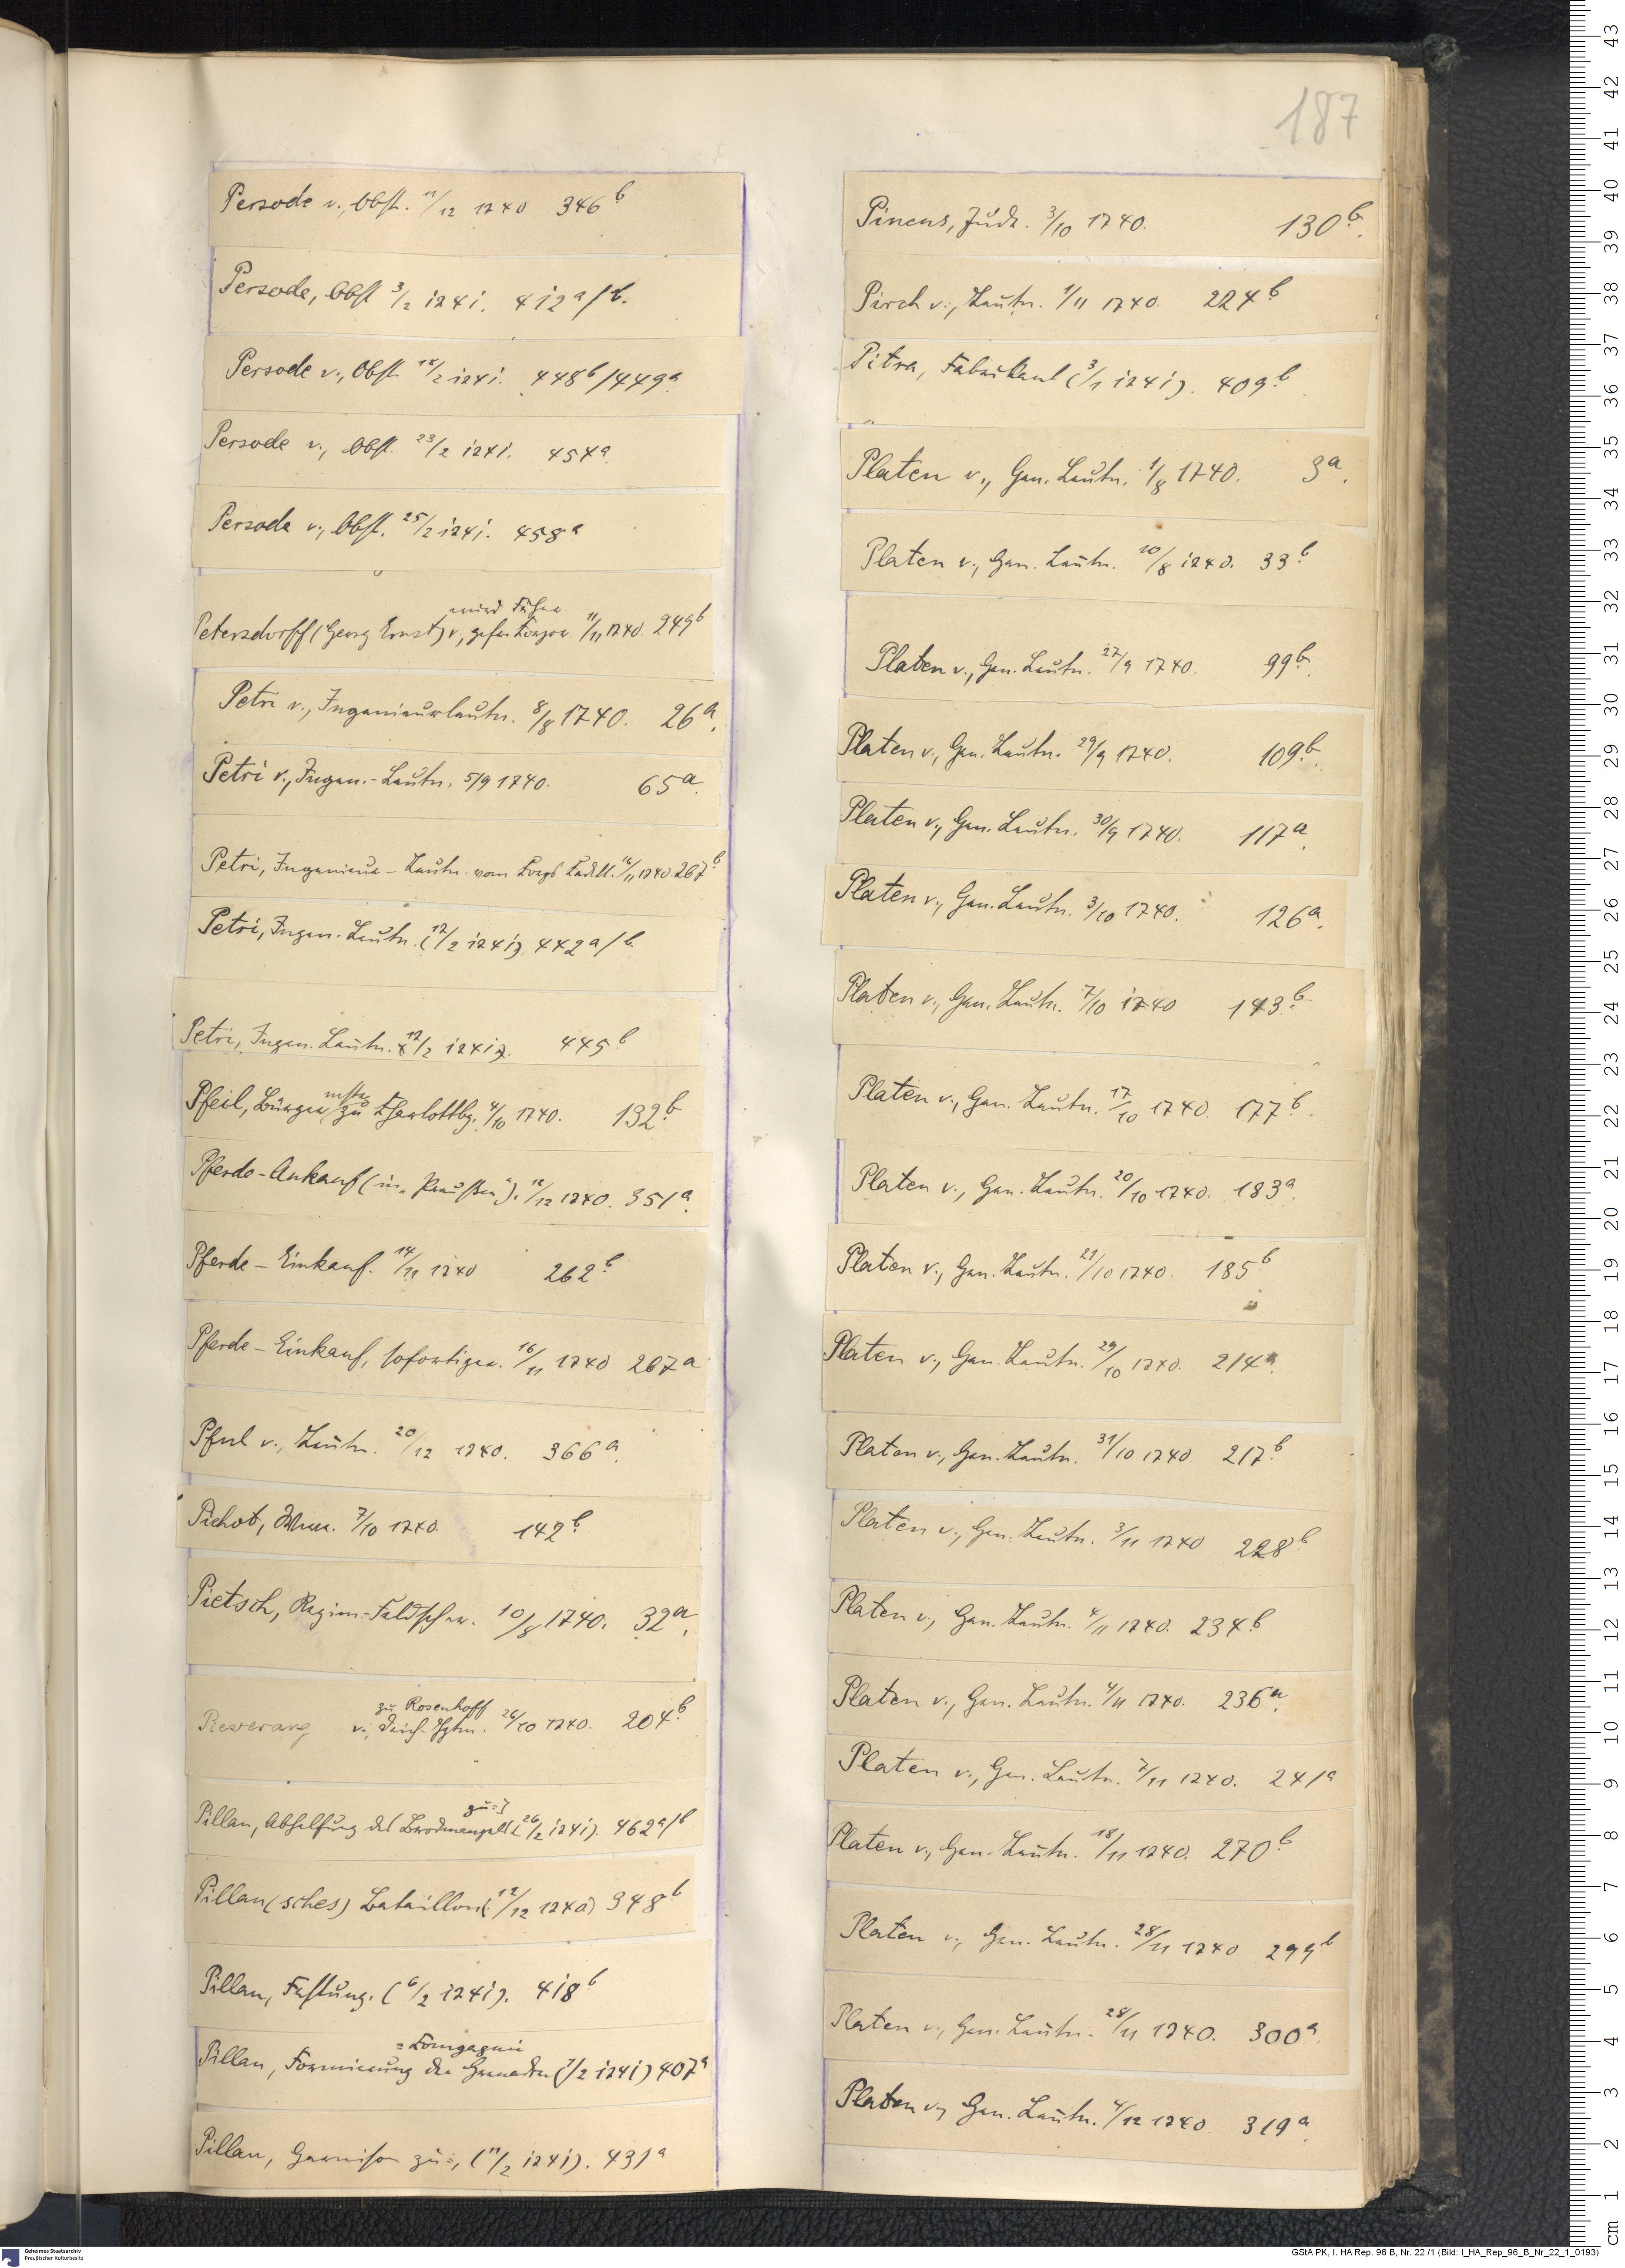 187
Persode v., Obst. 11/12 1740 346b
Persode, Obst 3/2 1741. 412a/b.
Persode v., Obst. 18/2 1741. 448b/449a
Persode v., Obst. 23/2 1741. 454a.
Persode v., Obst. 25/2 1741. 458a
wird Fähnr.
Petersdorff (Georg Ernst) v., 11/11 1740. 249b
Petri v., Ingenieurleutn. 8/8 1740. 26a.
Petri v., Ingen.-Leutn. 5/9 1740. 65a.
Petri, Ingenieur-Leutn. vom 16/11 1740 267b
Petri, Ingen.-Leutn. (12/2 1741). 442a/b.
Petri, Ingen. Leutn. 12/2 1741. 445b
mstr
Pfeil, Bürger zu Charlottbg. 4/10 1740. 132b.
Pferde-Ankauf (in „Preußen“). 12/12 1740. 351a.
Pferde-Einkauf. 14/11 1740 262b.
Pferde-Einkauf, sofortiger. 16/11 1740 267a
Pful v., Leutn. 20/12 1740. 366a.
Pichot, 7/10 1740. 142b.
Pietsch, Regim-Feldscher. 10/8 1740. 32a.
zu Rosenhoff
v., Deich-Hptm. 26/10 1740. 204b.
zu=}
Pillau, Abhelfung des Brodmangels (26/2 1741). 462a/b
Pillau(sches) Bataillon (12/12 1740) 348b
Pillau, Festung. (6/2 1741). 418b
=Compagnie
Pillau, Formierung der Grenadier (1/2 1741) 407a
Pillau, Garnison zu=, (11/2 1741). 431a
Pincus, Jude. 3/10 1740. 130b.
Pirch v., Leutn. 1/11 1740. 224b
Pitra, Fabrikant (3/1 1741). 409b
Platen v., Gen. Leutn. 1/8 1740. 3a.
Platen v., Gen. Leutn. 10/8 1740. 33b.
Platen v., Gen. Leutn. 27/9 1740. 99b.
Platen v., Gen. Leutn. 29/9 1740. 109b.
Platen v., Gen. Leutn. 30/9 1740. 117a.
Platen v., Gen. Leutn. 3/10 1740. 126a.
Platen v., Gen. Leutn. 7/10 1740 143b.
Platen v., Gen. Leutn. 17/10 1740. 177b.
Platen v., Gen. Leutn. 20/10 1740. 183a.
Platen v., Gen. Leutn. 21/10 1740. 185b
Platen v., Gen. Leutn. 29/10 1740. 214a.
Platen v., Gen. Leutn. 31/10 1740. 217b.
Platen v., Gen. Leutn. 3/11 1740 228b
Platen v., Gen. Leutn. 4/11 1740. 234b.
Platen v., Gen. Leutn. 4/11 1740. 236a.
Platen v., Gen. Leutn. 7/11 1740. 241a
Platen v., Gen. Leutn. 18/11 1740. 270b.
Platen v., Gen. Leutn. 28/11 1740 299b
Platen v., Gen. Leutn. 28/11 1740. 300a.
Platen v., Gen. Leutn. 4/12 1740. 319a.
43
42
41
40
39
38
37
36
35
34
33
32
31
30
29
28
27
26
25
24
23
22
21
20
19
18
17
16
15
14
13
12
11
10
9
8
7
6
5
4
3
2
1
cm
Geheimes Staatsarchiv
Preußischer Kulturbesitz
GStA PK, I. HA Rep. 96 B, Nr. 22 /1 (Bild: I_HA_Rep_96_B_Nr_22_1_0193)